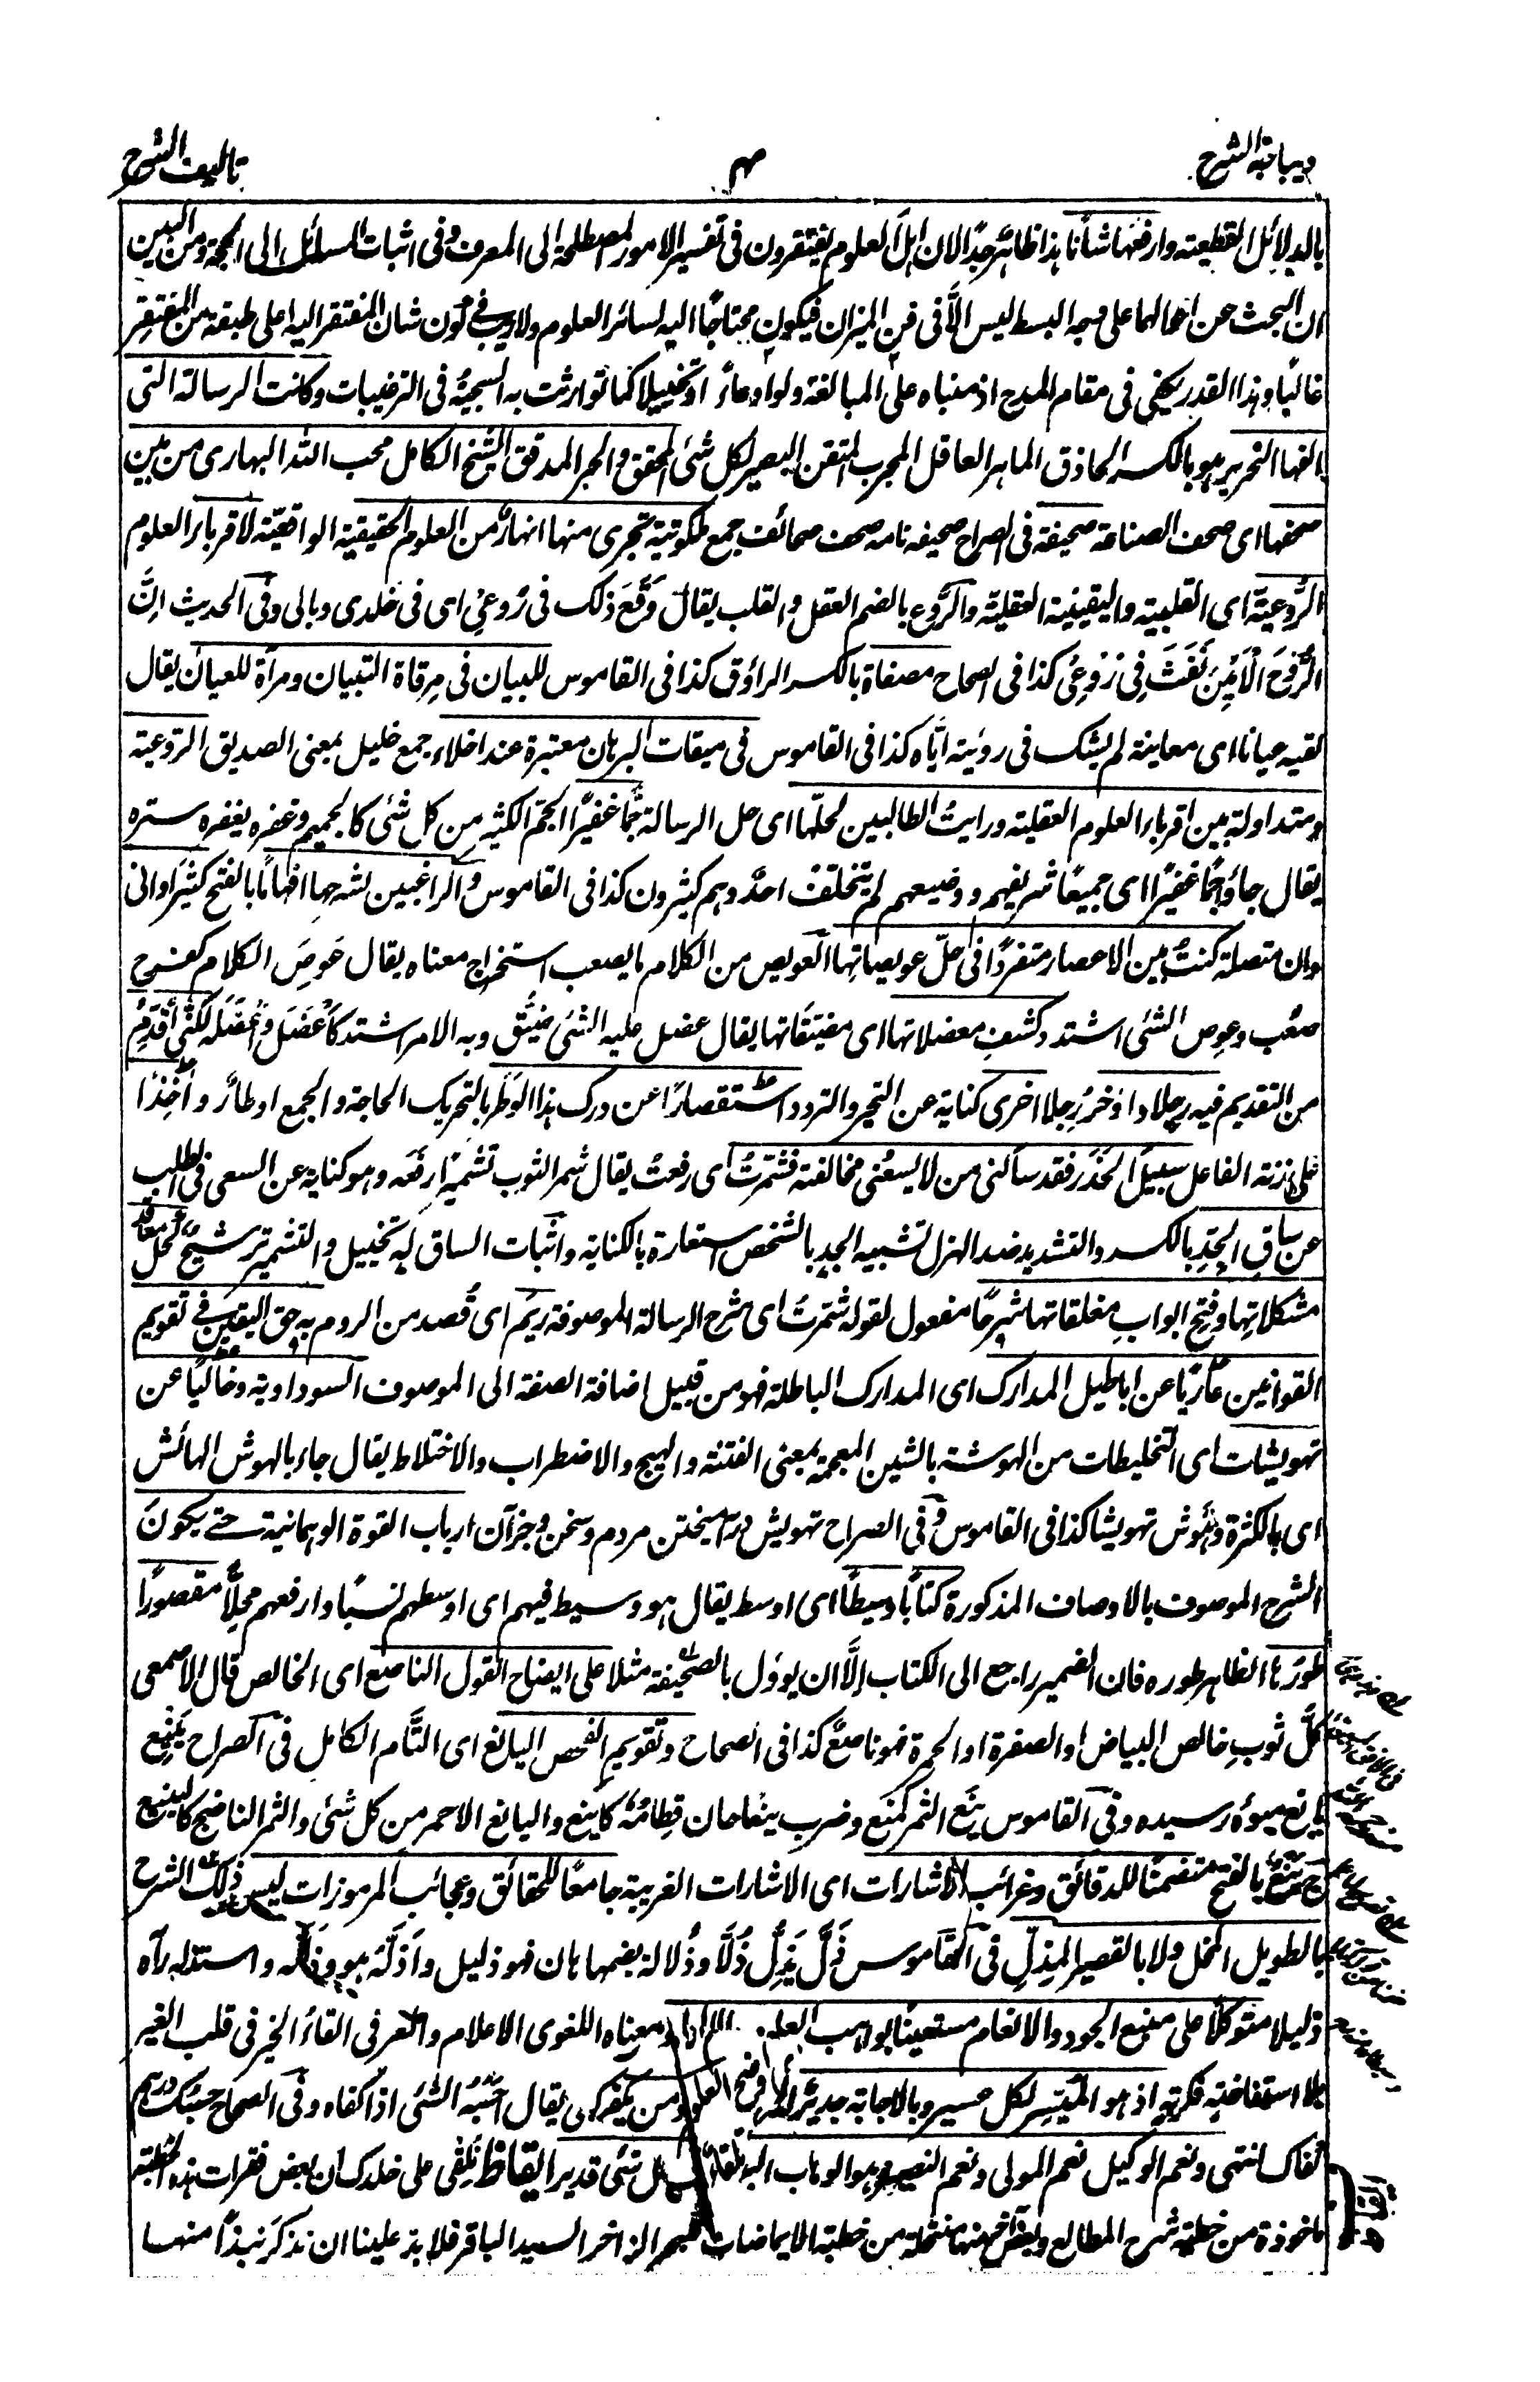 ديباجة الشرح
۴
تاليف الشرح
بالدلائل القطعية وارفعها شأنا هذا ظاهر جدًّا الا ان اهل العلوم يفتقرون فى تفسير الامور المصطلحة الى المعرف وفى اثبات المسائل الى الحجة ومن البين
ان البحث عن احوالهما على وجه البسط ليس الَّا فى فن الميزان فيكون محتاجًا اليه لسائر العلوم ولا ريب فى كون شان المفتقر اليه اعلى طبقة من المفتقِر
غالبًا وهذا القدر يكفى فى مقام المدح اذ مبناه على المبالغة ولو ادعاءً او تخييلا كما توارثت به السجيّة فى الترغيبات وكانت الرسالة التى
الفها النحرير هو بالكسر الحاذق الماهر العاقل المجرب المتقن البصير لكل شئ المحقق والحبر المدقق الشيخ الكامل محب الله البهارى من بين
صحفها اى صحف الصناعة صحيفة فى الصراح صحيفه نامه صحف صحائف جمع ملكوتية تجرى منها انهارٌ من العلوم الحقيقية الواقعيّة لاقرباء العلوم
الرُّوعيّة اى القلبية واليقينية العقليّة والرُّوع بالضم العقل والقلب يقال وَقَعَ ذلك فى رُوعِىْ اى فى خلدى وبالى وفى الحديث اِنَّ
الرُّوحَ الْاَمِيْنَ نَفَثَ فِى رُوْعِىْ كذا فى الصحاح مصفاة بالكسر الراؤق كذا فى القاموس للبيان فى مِرقاة التبيان ومرآة للعيان يقال
لقيه عيانا اى معاينة لم يشك فى روٴيته ايّاه كذا فى القاموس فى ميقات البرهان معتبرة عند اخلاء جمع خليل بمعنى الصديق الروعية
ومتداولة بين اقرباء العلوم العقلية ورايتُ الطالبين لحلّها اى حل الرسالة جمًّا غفيرًا الجمّ الكثير من كل شئ كالجميم وغفره يغفره ستره
يقال جاؤا جمًّا غفيرًا اى جميعًا شريفهم ووضيعهم لم يتخلف احدٌ وهم كثيرون كذا فى القاموس والراغبين لشرحها افهامًا بالفتح كثيرًا وانى
وان متصلة كنتُ بين الاعصار متفردًا فى حلّ عويصاتها العويص من الكلام ما يصعب استخراج معناه يقال عَوِصَ الكلام كفرح
صعُب وعوِص الشئ اشتد وكشفِ معضلاتها اى مضيّقاتها يقال عضل عليه الشئ ضيّق وبه الامر اشتد كاَعْضَلَ واعضَلَه لكنّى اُقَدِّمُ
من التقديم فيه رِجلا واؤخرُ رِجلا اخرى كناية عن التحير والتردد استقصارًا عن درك هذا الوَطَر بالتحريك الحاجة والجمع اوطارٌ وآخِذًا
على زنة الفاعل سبيلَ الحَذَر فقد سألنى من لا يسعُنى مخالفته فشمّرتُ اى رفعتُ يقال شمر الثوب تشميرًا رفَعَه وهو كناية عن السعى فى الطلب
عن ساقِ الجِدِّ بالكسر والتشديد ضد الهزل تشبيه الجد بالشخص استعارة بالكناية واثبات الساق له تخييل والتشمير ترشيح لحل معاقد
مشكلاتِها وفتحِ ابوابِ مغلقاتها شرحًا مفعول لقوله شمّرتُ اى شرح الرسالة الموصوفة يرُم اى قُصد من الروم به حق اليقين فى تقويم
القوانين عاريًا عن اباطيل المدارك اى المدارك الباطلة فهو من قبيل اضافة الصفة الى الموصوف السوداوية وخاليًا عن
تهويشات اى التخليطات من الهوشة بالشين المعجمة بمعنى الفتنة والهيج والاضطراب والاختلاط يقال جاء بالهوش الهائش
اى بالكثرة وهَوّش تهويشًا كذا فى القاموس وفى الصراح تهويش درآميختن مردم وسخن وجز آن ارباب القوة الوهمانية حتى يكونَ
الشرح الموصوف بالاوصاف المذكورة كتابًا وسيطًا اى اوسط يقال هو وسيط فيهم اى اوسطهم نسبًا وارفعهم محلًّا مقصورًا
طورُها الظاهر طوره فان الضمير راجع الى الكتاب الَّا ان يووٴل بالصحيفة مثلا على ايضاح القول الناصع اى الخالص قال الاصمعى
كلّ ثوبٍ خالص البياض او الصفرة او الحمرة فهو ناصعٌ كذا فى الصحاح وتقويم الفحص اليانع اى التَّام الكامل فى الصراح يَنْعٌ
يانع ميوهٴ رسيده وفى القاموس ينَع الثمر كمنَع وضرب ينعًا حان قِطافُه كاينع واليانع الاحمر من كل شئ والثمر الناضج كالينيع
ج يَنْعٌ بالفتح متضمنًا للدقائق وغرائب الاشارات اى الاشارات الغريبة جامعًا للحقائق وعجائب المرموزات ليس ذلك الشرح
بالطويل المخل ولا بالقصير المذِلّ فى القاموس ذَلّ يَذِلُّ ذُلًّا وذُلالة بضمها هان فهو ذليل واَذَلَّهُ هو وذلَّله واستذله رآه
ذليلا متوكلًا على منبع الجود والانعام مستعينًا بواهب العلم معناه اللغوى الاعلام والعرفى القاءُ الخير فى قلب الغير
بلا استفاضةِ فكريةٍ اذ هو الميسّر لكل عسير وبالاجابة جدير يقال احْسَبَهُ الشئ اذا كفاه وفى الصحاح حسبُك درهم
كفاك انتهى ونعم الوكيل نعم المولى ونعم النصير وهو الوهاب كل شئ قدير ايقاظ يُلقى على خلدك ان بعض فقرات هذه الخطبة
ماخوذة من خطبة شرح المطالع وبعض آخر منها منتحلة من خطبة الايماضات للبحر الزاخر السيد الباقر فلا بد علينا ان نذكر نبذًا منها